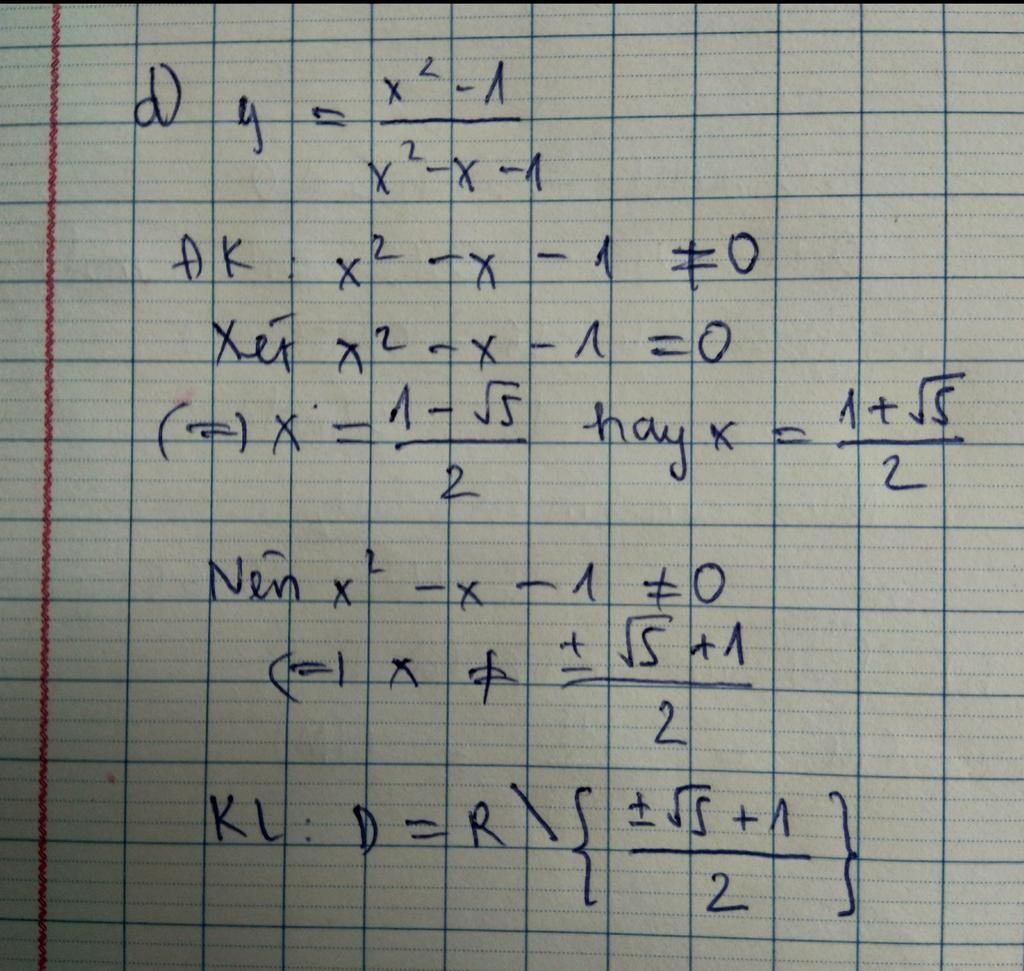 d) y = (x² - 1) / (x² - x - 1)
ĐK : x² - x - 1 ≠ 0
Xét x² - x - 1 = 0
(=) x = (1 - √5) / 2 hay x = (1 + √5) / 2
Nên x² - x - 1 ≠ 0
(=) x ≠ (± √5 + 1) / 2
KL : D = R \ { (±√5 + 1) / 2 }